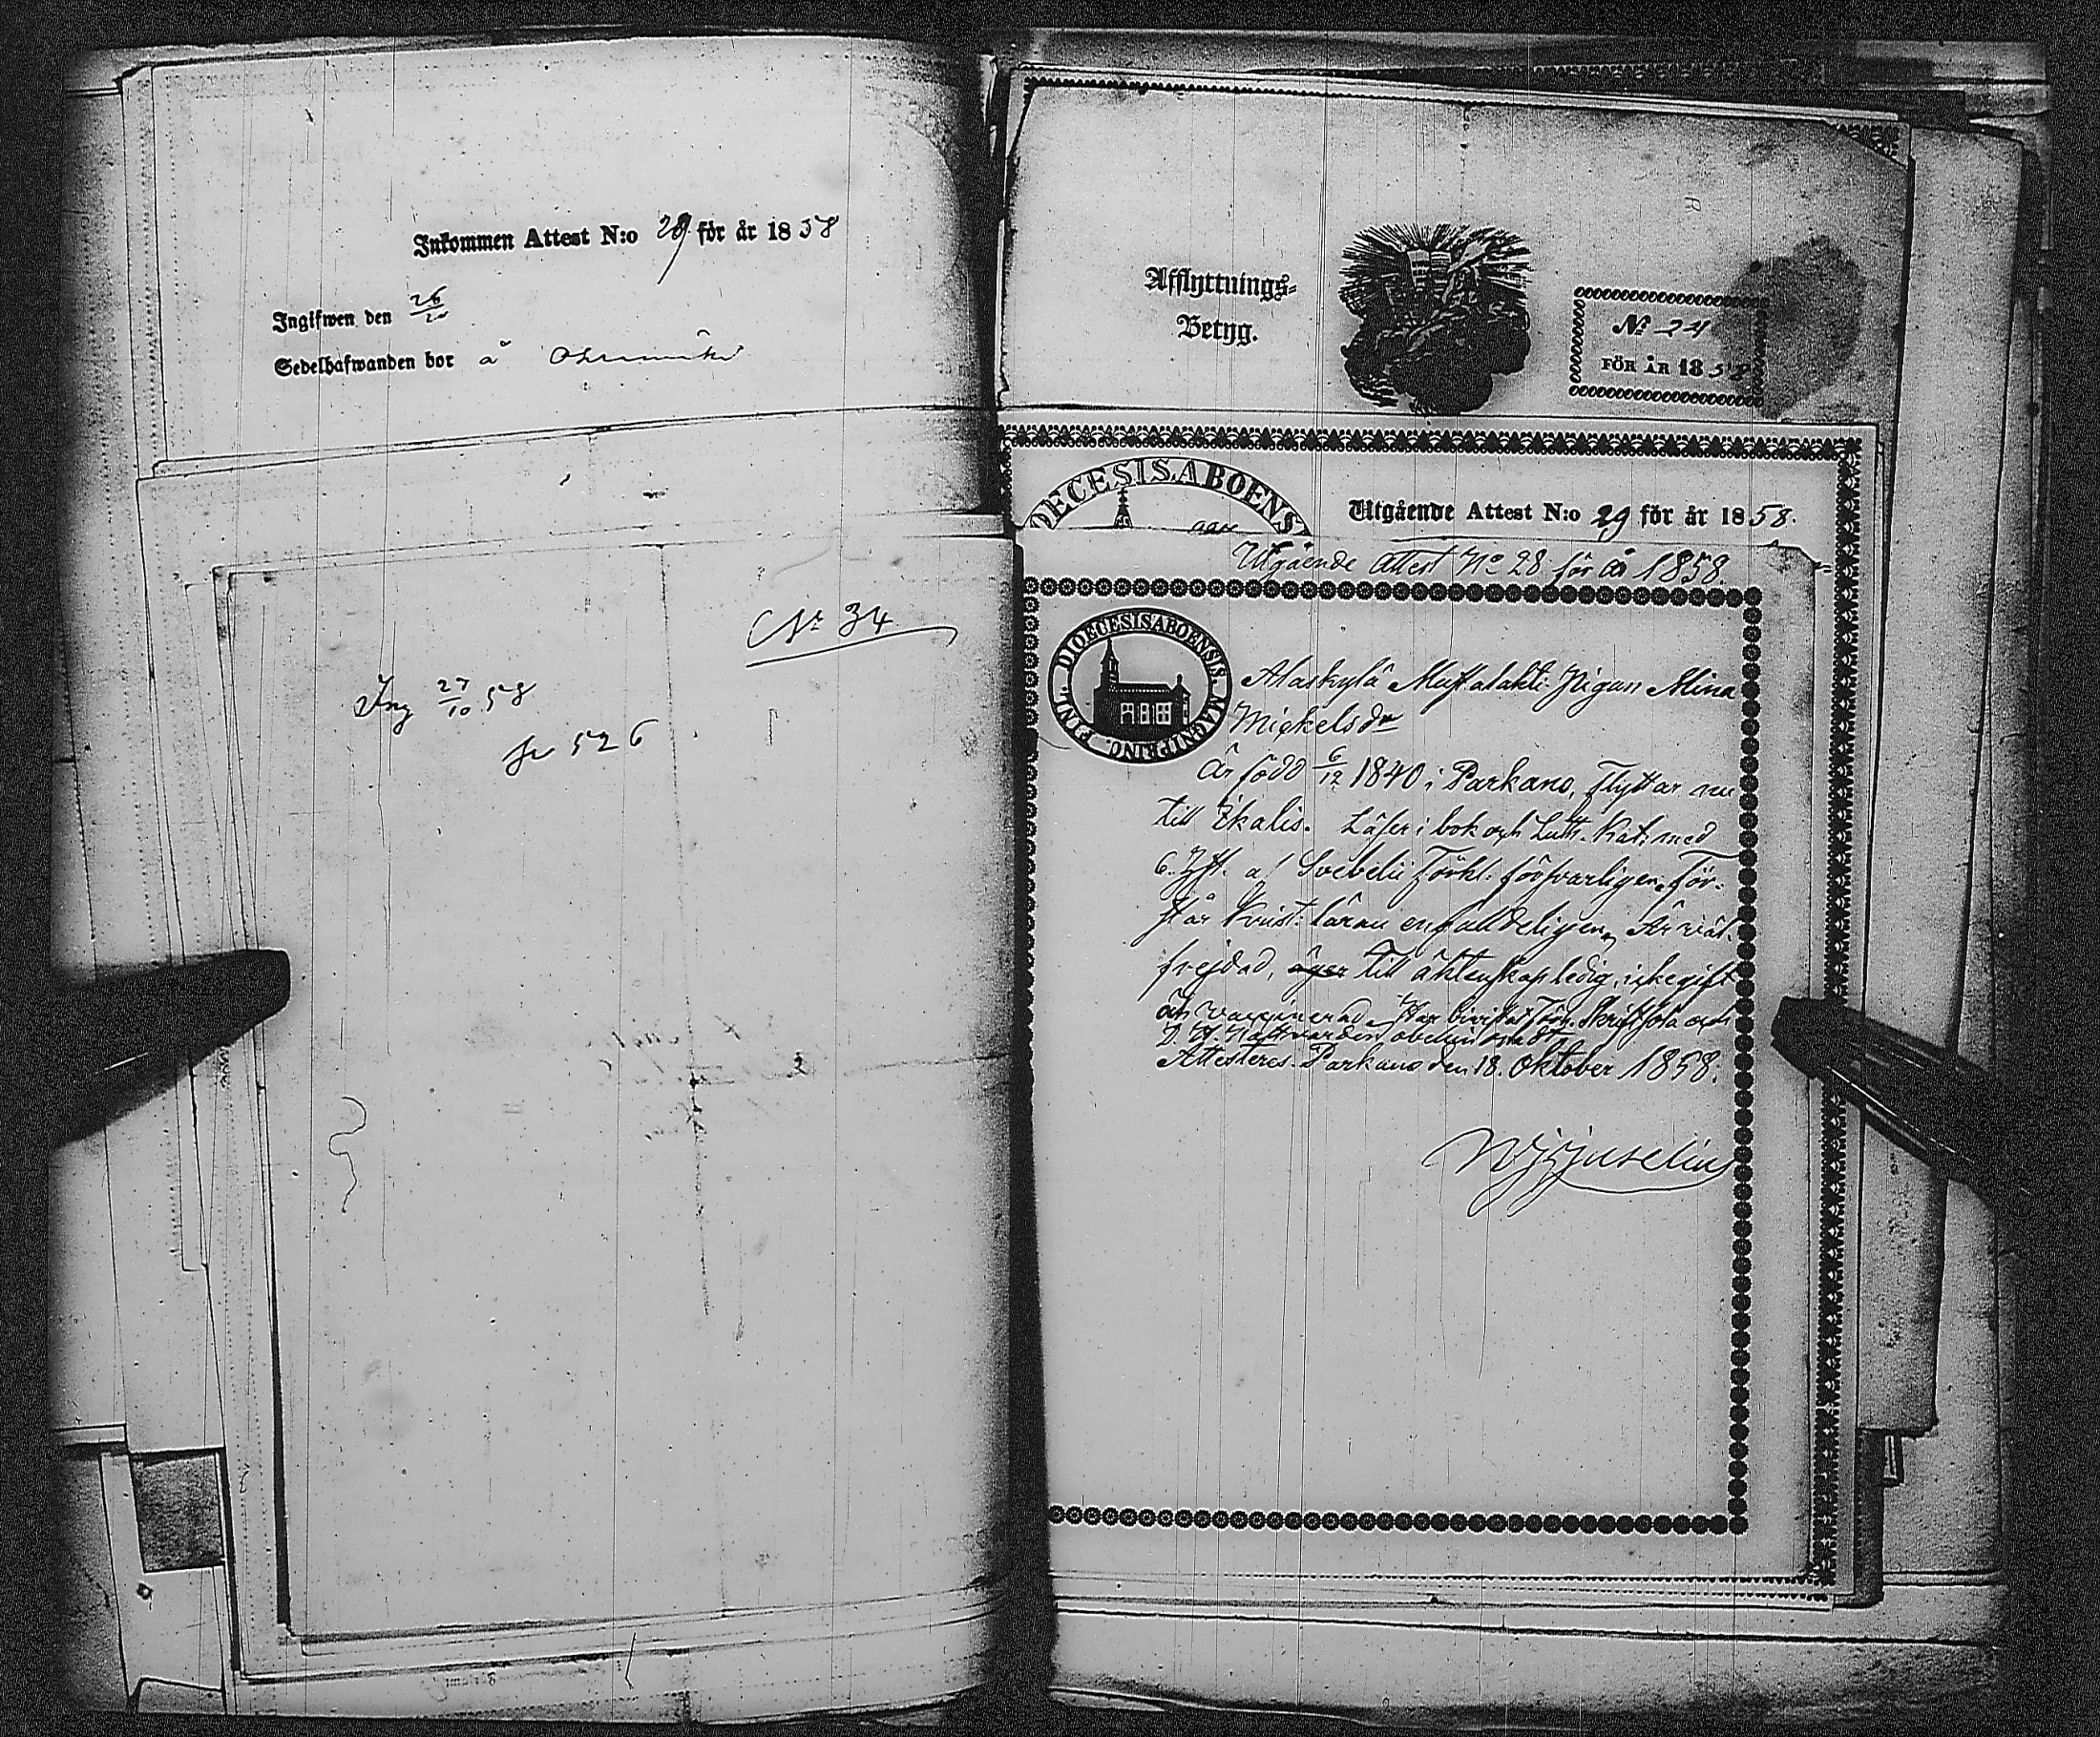 Inkommen Attest N:o 29 för år 1858
Ingifwen den 26/10
Sedelhafwanden bor å
No 34
Ing 27/10 58
526
Afflyttnings-
Betyg.
No 24
FÖR ÅR 1858
DIOECESIS ABOENSIS
Utgående Attest N:o 29 för år 1858.
Utgående Attest No 28 för år 1858.
DIOECESIS ABOENSIS. MAGNI PRINC. FINL.
Alaskylä Mustalahti Pigan Mina
Mickelsdr
Är född 6/12 1840 i Parkano, flyttar nu
till Ikalis. Läser i bok och Luth. Kat: med
6. Hft. af Svebelii Förkl: försvarligen. för-
står Krist: läran enfalldeligen, Är väl-
frejdad, äger till äktenskap ledig, icke gift
och vaccinerad. Har bivistat Skriftskola och
H. H. Nattvarden
Attesteres. Parkano den 18. Oktober 1858.
Juselius